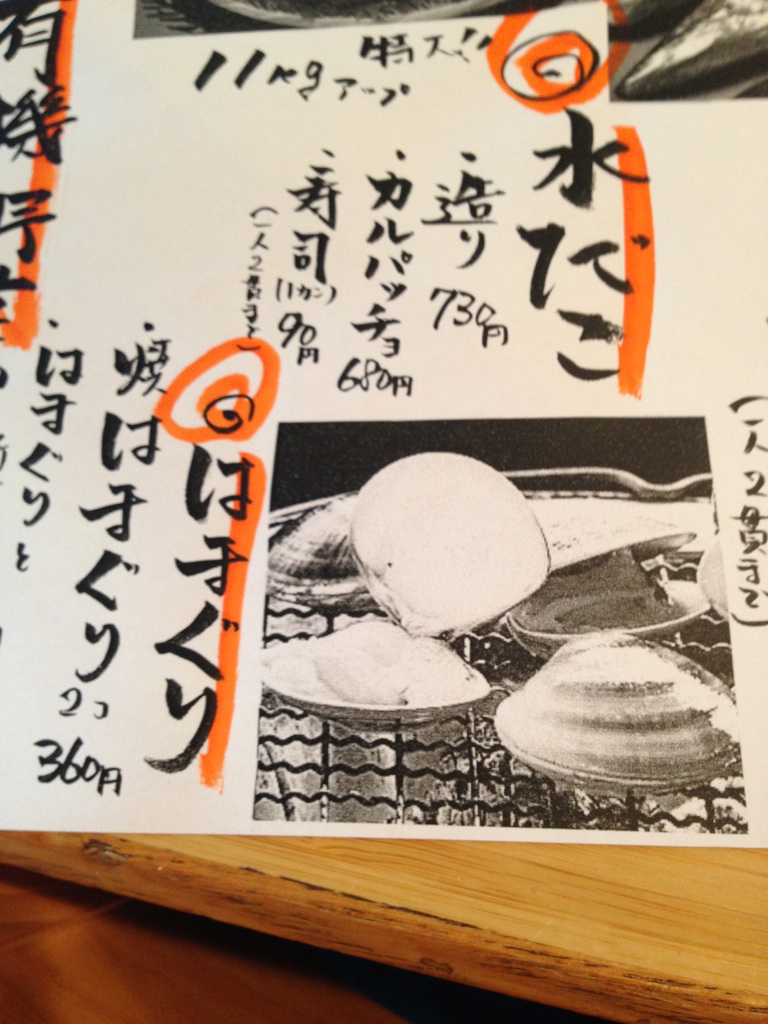 (一人2貫まで)
水だこ
特大!!
11kgアップ
・造り 730円
・カルパッチョ 680円
・寿司(1カン) 90円
(一人2貫まで)
はまぐり
・焼はまぐり 2コ 360円
・はまぐりと
有機野菜